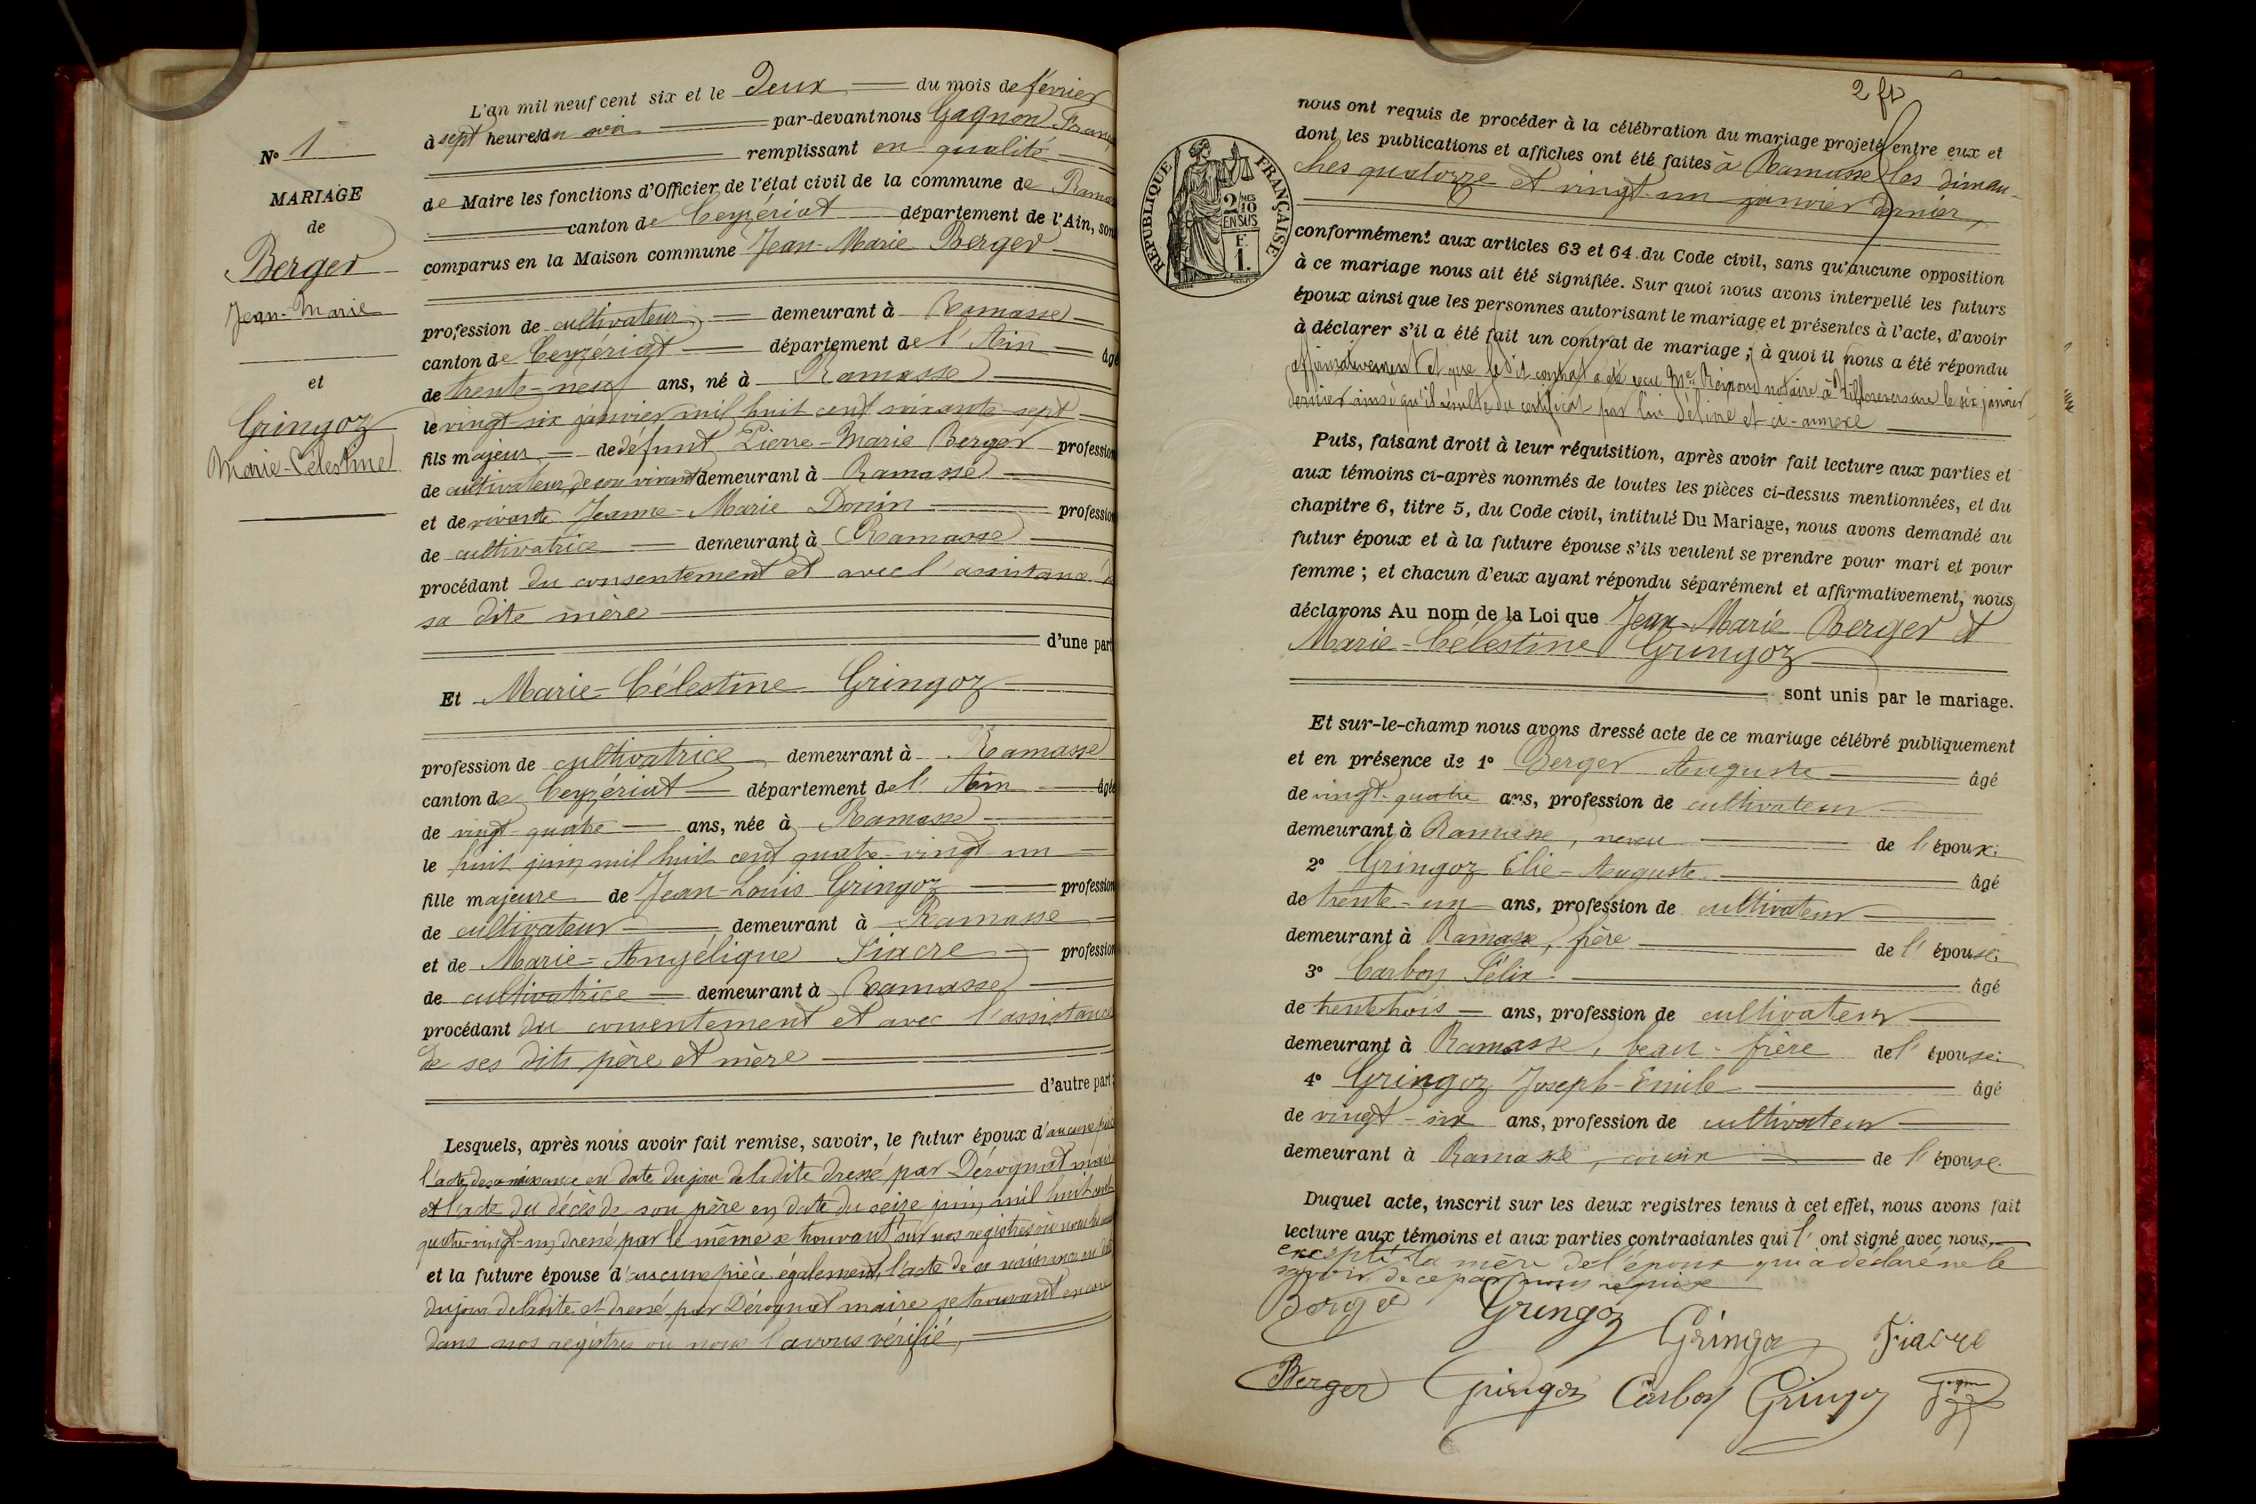 N° 1
MARIAGE
de
Berger
Jean-Marie
et
Gringoz
Marie-Célestine
L'an mil neuf cent six et le Deux du mois de février
à sept heures du soir par-devant nous Gagnon
remplissant en qualité
de Maire les fonctions d'Officier de l'état civil de la commune de
canton de Ceyzériat département de l'Ain, sont
comparus en la Maison commune Jean-Marie Berger
profession de cultivateur demeurant à Ramasse
canton de Ceyzériat département de l'Ain âgé
de trente-neuf ans, né à Ramasse
le vingt-six janvier mil huit cent soixante-sept
fils majeur de defunt Pierre-Marie Berger profession
de cultivateur, de son vivant demeurant à Ramasse
et de vivante Jeanne-Marie profession
de cultivatrice demeurant à Ramasse
procédant du consentement et avec l'assistance de
sa dite mère
d'une part
Et Marie-Célestine Gringoz
profession de cultivatrice demeurant à Ramasse
canton de Ceyzériat département de l'Ain âgée
de vingt-quatre ans, née à Ramasse
le huit juin mil huit cent quatre-vingt-un
fille majeure de Jean-Louis Gringoz profession
de cultivateur demeurant à Ramasse
et de Marie-Angélique Fiacre profession
de cultivatrice demeurant à Ramasse
procédant du consentement et avec l'assistance
de ses dits père et mère
d'autre part;
Lesquels, après nous avoir fait remise, savoir, le futur époux d'aucune pièce
l'acte de sa naissance en date du jour de la dite dressé par Dérognat maire
et l'acte du décès de son père en date du seize juin mil huit cent
quatre-vingt-un dressé par le même se trouvant sur nos registres où nous
et la future épouse d'aucune pièce également, l'acte de sa naissance en date
du jour de la dite et dressé par Dérognat maire se trouvant encore
dans nos registres où nous l'avons vérifié,
2 fr
nous ont requis de procéder à la célébration du mariage projeté entre eux et
dont les publications et affiches ont été faites à Ramasse les diman-
ches quatorze et vingt-un janvier dernier,
RÉPUBLIQUE FRANÇAISE
2/10 EN SUS
F. 1.
conformément aux articles 63 et 64 du Code civil, sans qu'aucune opposition
à ce mariage nous ait été signifiée. Sur quoi nous avons interpellé les futurs
époux ainsi que les personnes autorisant le mariage et présentes à l'acte, d'avoir
à déclarer s'il a été fait un contrat de mariage; à quoi il nous a été répondu
affirmativement et que le dit contrat a été reçu Me notaire à Villereversure le six janvier
dernier ainsi qu'il résulte du certificat par lui délivré et ci-annexé
Puis, faisant droit à leur réquisition, après avoir fait lecture aux parties et
aux témoins ci-après nommés de toutes les pièces ci-dessus mentionnées, et du
chapitre 6, titre 5, du Code civil, intitulé Du Mariage, nous avons demandé au
futur époux et à la future épouse s'ils veulent se prendre pour mari et pour
femme; et chacun d'eux ayant répondu séparément et affirmativement, nous
déclarons Au nom de la Loi que Jean-Marie Berger et
Marie-Célestine Gringoz
sont unis par le mariage.
Et sur-le-champ nous avons dressé acte de ce mariage célébré publiquement
et en présence de 1° Berger Auguste âgé
de vingt-quatre ans, profession de cultivateur
demeurant à Ramasse, neveu de l'époux;
2° Gringoz Elie-Auguste âgé
de trente-un ans, profession de cultivateur
demeurant à Ramasse, frère de l'épouse;
3° Carbon Félix âgé
de trente trois ans, profession de cultivateur
demeurant à Ramasse, beau-frère de l'épouse;
4° Gringoz Joseph-Emile âgé
de vingt-six ans, profession de cultivateur
demeurant à Ramasse, cousin de l'épouse.
Duquel acte, inscrit sur les deux registres tenus à cet effet, nous avons fait
lecture aux témoins et aux parties contractantes qui l'ont signé avec nous,
excepté la mère de l'époux qui a déclaré ne le
savoir de ce par nous requise
Berger Gringoz Gringoz Fiacre
Berger Gringoz Carbon Gringoz